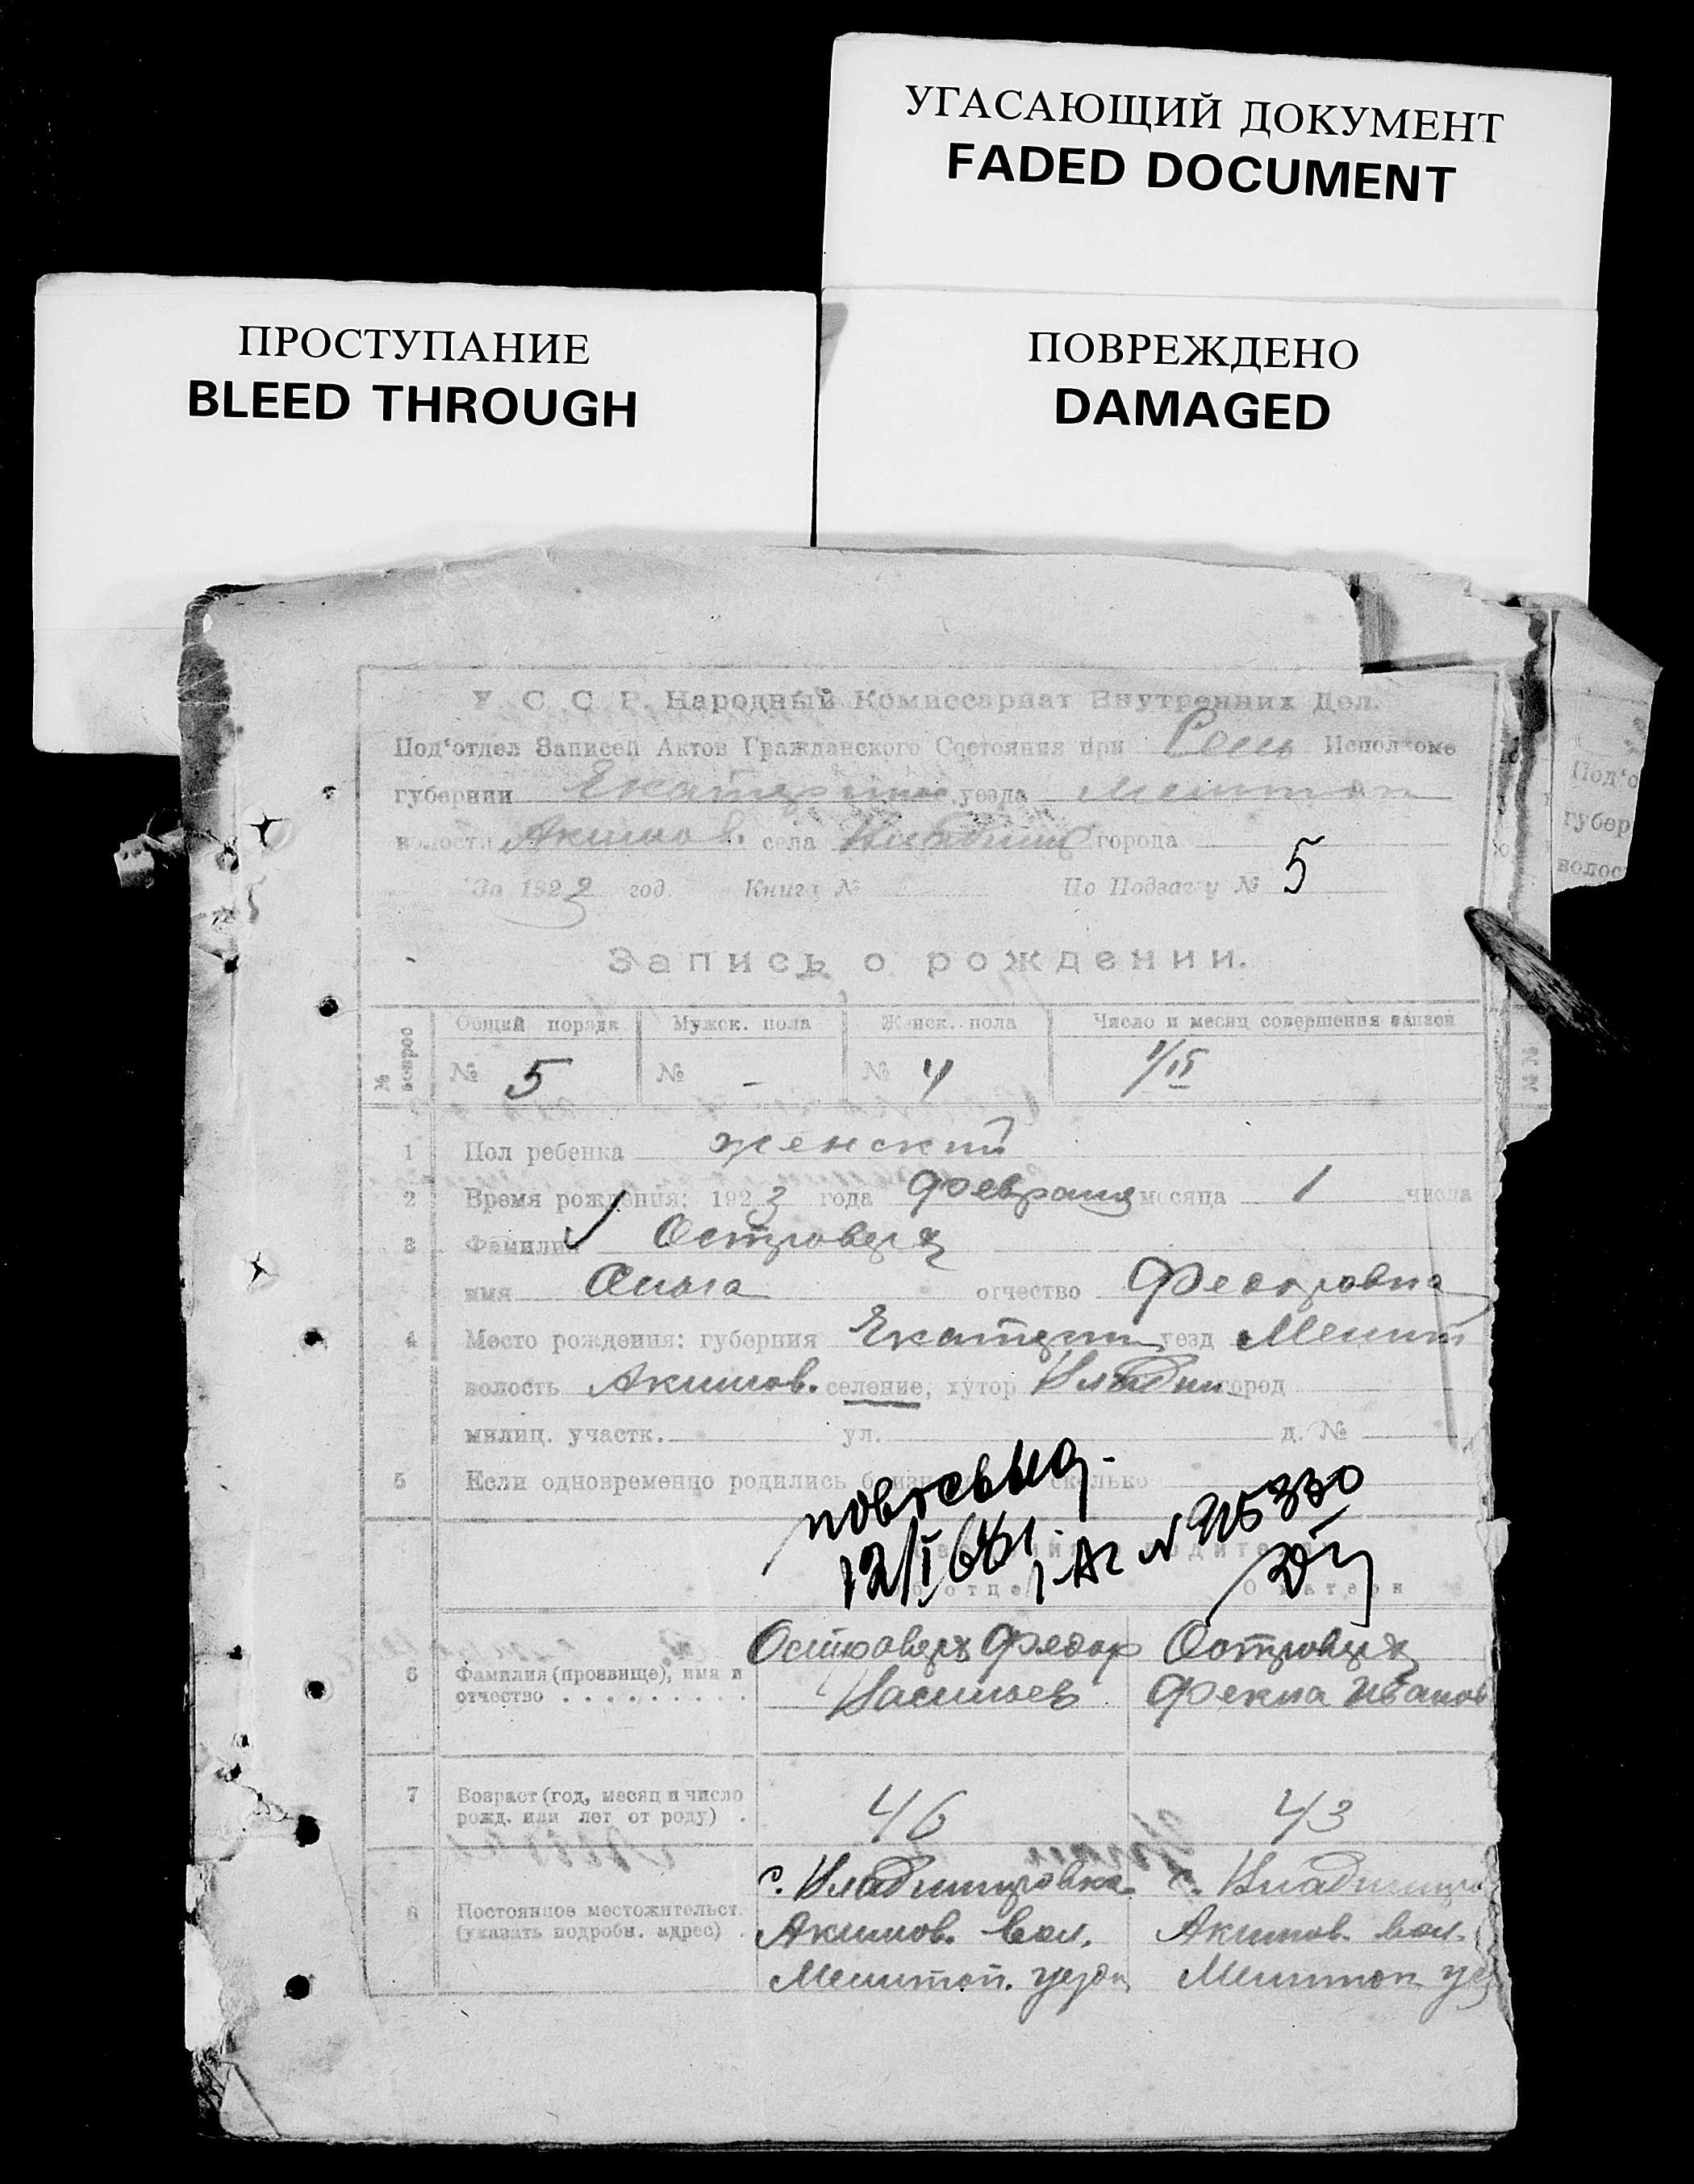 УГАСАЮЩИЙ ДОКУМЕНТ
FADED DOCUMENT
ПРОСТУПАНИЕ
BLEED THROUGH
ПОВРЕЖДЕНО
DAMAGED
У. С. С. Р. Народный Комиссариат Внутренних Дел.
Под'отдел Записей Актов Гражданского Состояния при Сель Исполкоме
губернии уезда Мелитоп
волости Акимов. села Владим города
За 1923 год. Книга № По Подвагу № 5
Под'о
губер
волос
Запись о рождении.
№ вопрос
Общий порядк Мужск. пола Женск. пола Число и месяц совершения записи
№ 5 № - № 4 1/II
№№
1 Пол ребенка женский
2 Время рождения: 1923 года Февраля месяца 1 числа
3 Фамилия Островерх
имя отчество Федоровна
4 Место рождения: губерния Екатерин уезд Мелит
волость Акимов. селение, хутор Владим город
милиц. участк. ул. д. №
5 Если одновременно родились
12/I
О отце О матери
6 Фамилия (прозвище), имя и отчество . . . . . . . . .
Островерх Федор Островерх
Васильев Фекла Иванов
7 Возраст (год, месяц и число рожд. или лет от роду) .
46 43
8 Постоянное местожительст. (указать подробн. адрес) .
с. Владимировка с. Владимиро
Акимов. вол. Акимов. вол.
Мелитоп. уезда Мелитоп уез